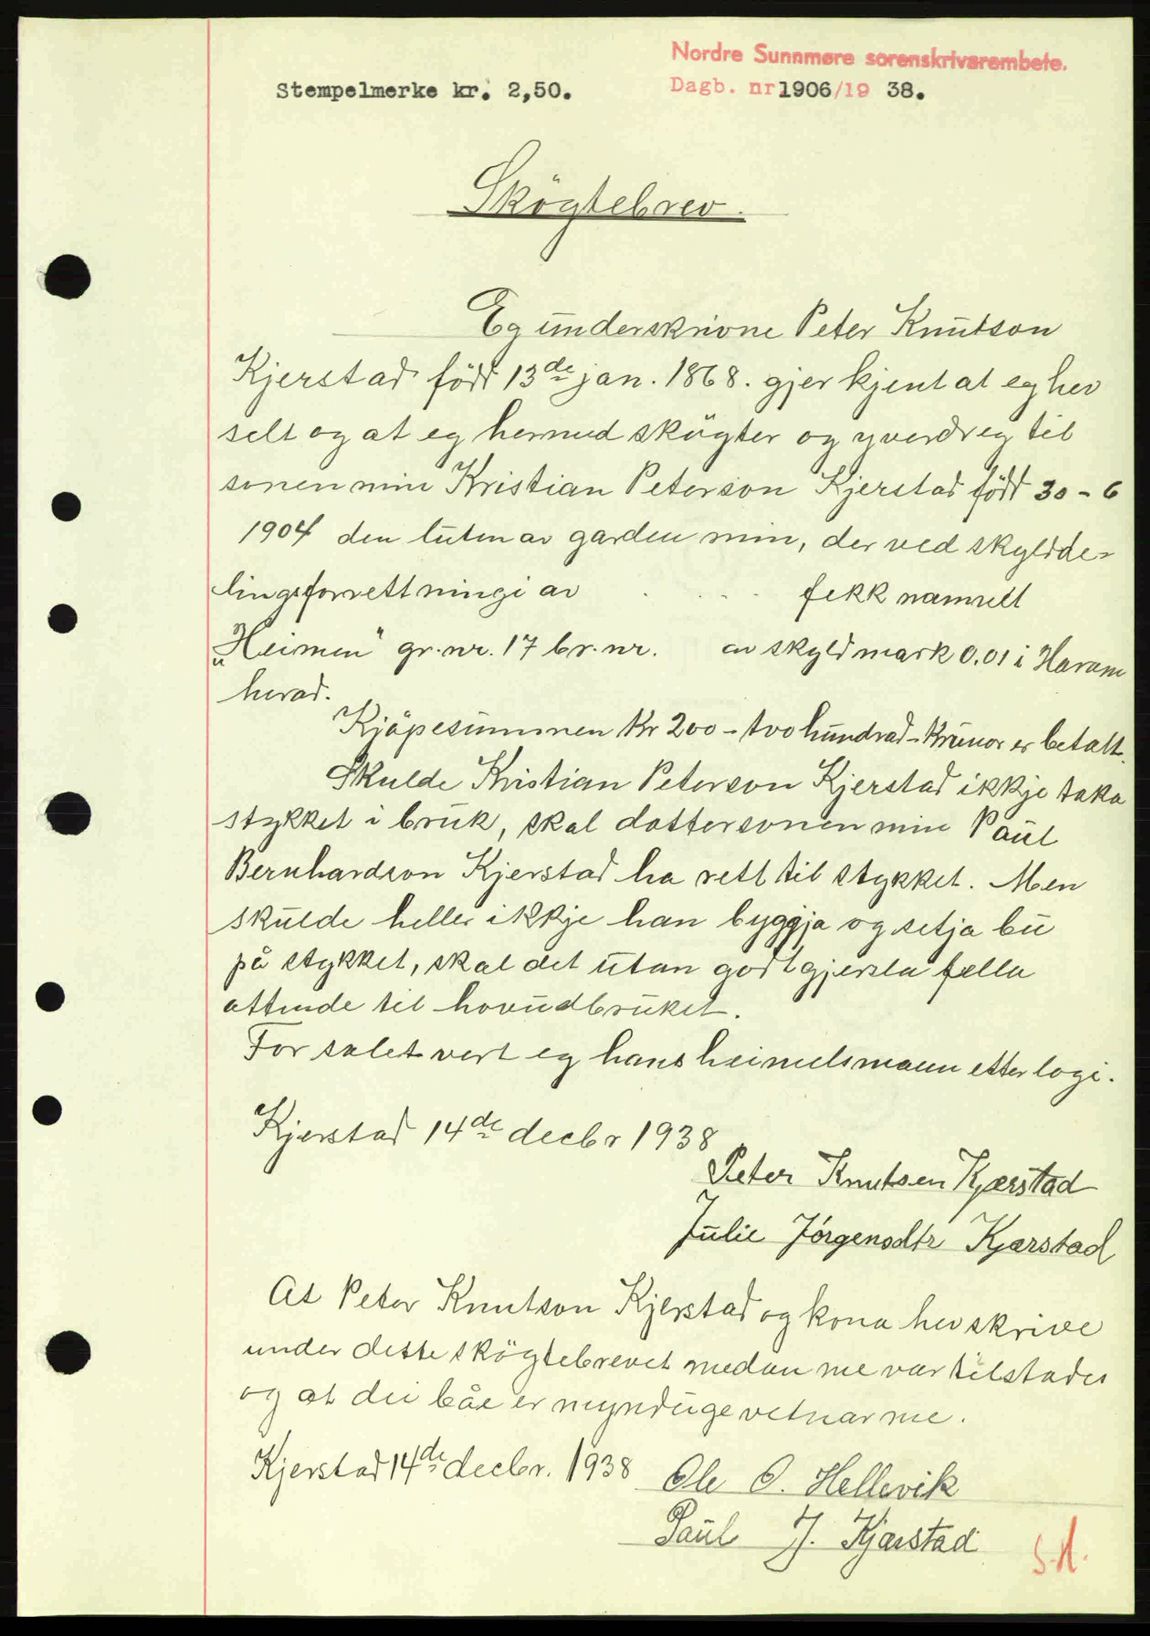 Nordre Sunnmøre sorenskrivarembete.
Stempelmerke kr. 2,50.
Dagb. nr 1906/19 38.
Skögtebrev.
Eg underskrivne Peter Knutson
Kjerstad födt 13de jan. 1868. gjer kjent at eg hev
selt og at eg hermed skögter og yverdreg til
sonen min Kristian Peterson Kjerstad födt 30-6
1904 den luten av garden min, der ved skyldde-
lingsforrettningi av . . . . fekk namnet
"Heimen" gr.nr. 17 br.nr. av skyldmark 0.01 i Haram
herad.
Kjöpesummen kr 200 - tvo hundrad - krunor er betalt.
Skulde Kristian Peterson Kjerstad ikkje taka
stykket i bruk, skal dottersonen min Paul
Bernhardson Kjerstad ha rett til stykket. Men
skulde heller ikkje han byggja og setja bu
på stykket, skal det utan godtgjersla falla
attende til hovudbruket.
For salet vert eg hans heimelsmann etter logi.
Kjerstad 14de decbr 1938
Peter Knutsen Kjærstad
Julie Jørgensdtr Kjærstad
At Peter Knutson Kjerstad og kona hev skrive
under dette skögtebrevet medan me var tilstades
og at dei båe er mynduge vetnar me.
Kjerstad 14de decbr. 1938
Ole O. Hellevik
Paul J. Kjærstad
S.A.